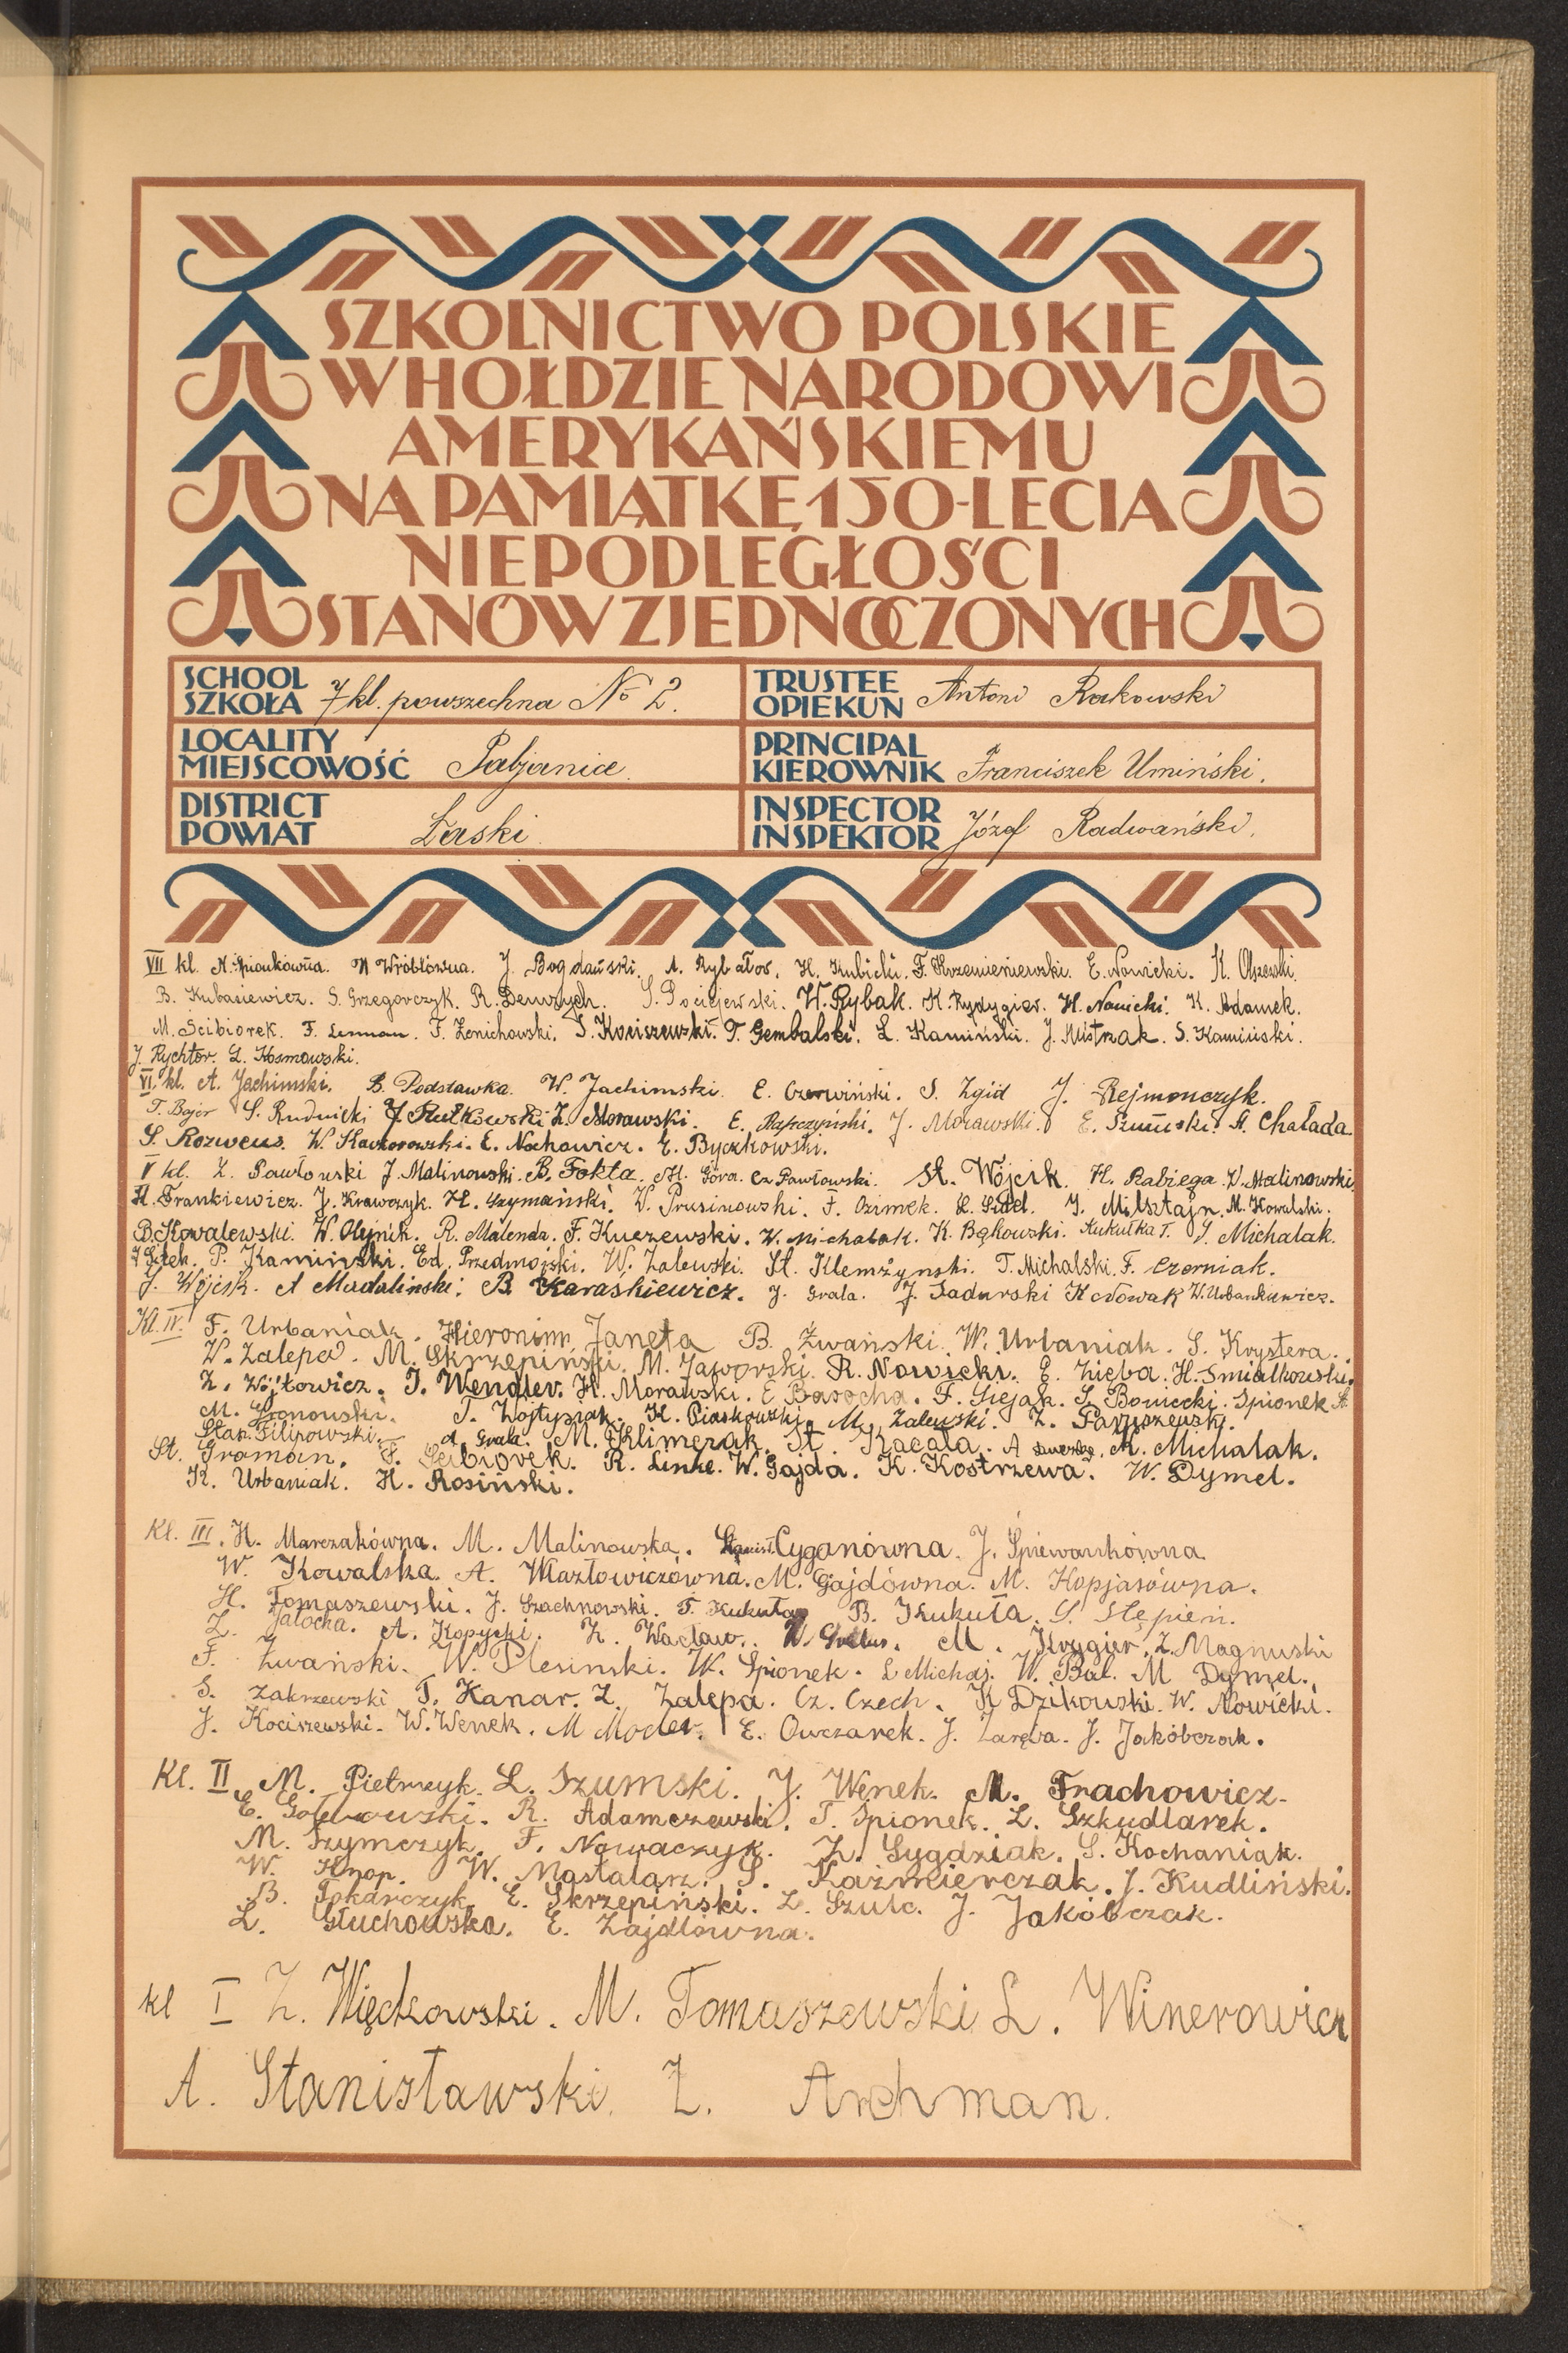 SZKOLNICTWO POLSKIE
W HOŁDZIE NARODOWI
AMERYKAŃSKIEMU
NA PAMIĄTKĘ 150-LECIA
NIEPODLEGŁOŚCI
STANÓW ZJEDNOCZONYCH
SCHOOL SZKOŁA 7 kl. powszechna № 2.
TRUSTEE OPIEKUN Antoni Rakowski
LOCALITY MIEJSCOWOŚĆ Pabjanice
PRINCIPAL KIEROWNIK Franciszek Umiński.
DISTRICT POWIAT Łaski
INSPECTOR INSPEKTOR Józef Radwański.
VII kl. W Wróblówna. J. Bogdański. A. Rybałow. H. Kubicki. F. Krzemieniewski. E. Nowicki. K. Olszewski.
B. Kubasiewicz. S. Grzegorczyk. R. S. Pociejewski. W. Rybak. K. Rydygier. H. Nowicki. K. Adamek.
M. Ścibiorek. F. Lenman. F. Zenichowski. S. Kociszewski. T. Gembalski. L. Kamiński. J. Mistrzak. S. Kamiński.
J. Rychter. L. Kosmowski.
VI kl. A. Jachimski. B. Podstawka. W. Jachimski. E. Czerwiński. S. Zgid J. Rejmonczyk.
T. Bajer S. Rudnicki J. Rutkowski Z. Morawski. E. J. Morawski. E. Szumski. A. Chałada.
S. Rozwens. W. Kaczorowski. E. Nochowicz. E. Byczkowski.
V kl. Z. Pawłowski J. Malinowski. B. Fokta. H. Góra. Cz Pawłowski. St. Wójcik. H. Rabiega. W. Malinowski.
H. Frankiewicz. J. Krawczyk. H. Szymański. W. Prusinowski. F. Ozimek. L. Sidel. J. Milsztajn. M. Kowalski.
B. Kowalewski. W. Olejnik. R. Malenda. F. Kuczewski. W. Michalak. K. Bąkowski. Kukułka T. S. Michalak.
J Sitek. P. Kamiński. Ed. Przedmojski. W. Zalewski. St. Klemżynski. T. Michalski. F. Czerniak.
J. Wójcik. A Madaliński. B. Karaśkiewicz. J. Grala. J. Sadurski K Nowak W. Urbankiewicz.
Kl. IV. F. Urbaniak. Hieronim Janeta B. Żwański. W. Urbaniak. S. Krystera.
W. Zalepa. M. Skrzepiński. M. Jaworski. R. Nowicki. E. Zięba. H. Smiałkowski.
Z. Wójtowicz. J. Wendler. H. Morawski. E Barocha. F. Giejak. S. Boniecki. Spionek A.
M. T. Wojtysiak. H. Piaskowski. M. Zalewski. Z. Paruszewski.
Stan. Filipowski. A. Grala. M. Klimczak. St. Kacała. A M. Michalak.
St. Groman. F. Ścibiorek. R. Linke. W. Gajda. K. Kostrzewa. W. Dymel.
K. Urbaniak. H. Rosiński.
Kl. III. H. Marczakówna. M. Malinowska. Cyganówna. J. Śpiewankówna.
W. Kowalska. A. Wlazłowiczówna. M. Gajdówna. M. Kopjasówna.
H. Tomaszewski. J. Szachnowski. T. Kukuła B. Kukuła. S. Stępien.
Z. Jatocha. A. Kopycki. Z. Wacław. W. Grelus. M. Krygier. Z. Magnuski
F. Żwański. W. Plesinski. W. Spionek. L Michaj. W. Bal. M Dymel.
S. Zakrzewski T. Kanar. Z. Zalepa. Cz. Czech. K Dzikowski. W. Nowicki.
J. Kociszewski. W. Wenek. M Moder. E. Owczarek. J. Zaręba. J. Jakóbczak.
Kl. II. M. Pietrzyk. L. Szumski. J. Wenek. M. Trachowicz.
E. Gołębowski. R. Adamczewski. T. Spionek. L. Szkudlarek.
M. Szymczyk. F. Nowaczyk. Z. Sygdziak. S. Kochaniak.
W. Knop. W. Mastalarz. S. Kaźmierczak. J. Kudliński.
B. Tokarczyk. E. Skrzepiński. Z. Szulc. J. Jakóbczak.
L. Głuchowska. E. Zajdlówna.
kl I Z. Więckowski. M. Tomaszewski L. Winerowicz
A. Stanisławski. Z. Archman.